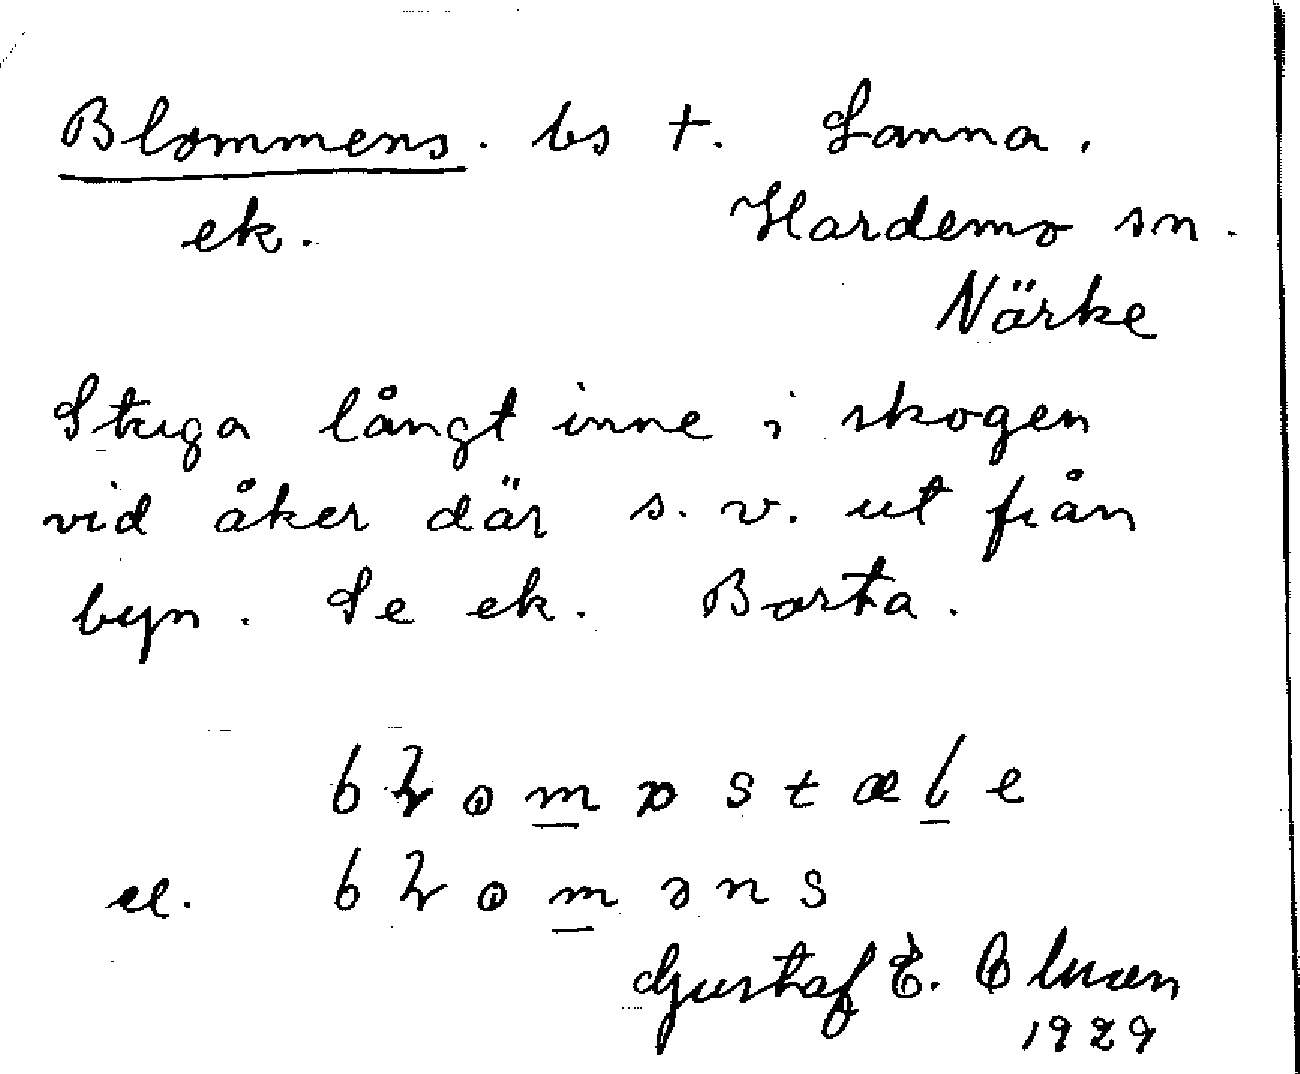 Blommens. bs †. Lanna.
ek. Hardemo sn.
Närke
Stuga långt inne i skogen
vid åker där s. v. ut från
byn. Se ek. Barta.
el.
Gustaf E.
1929